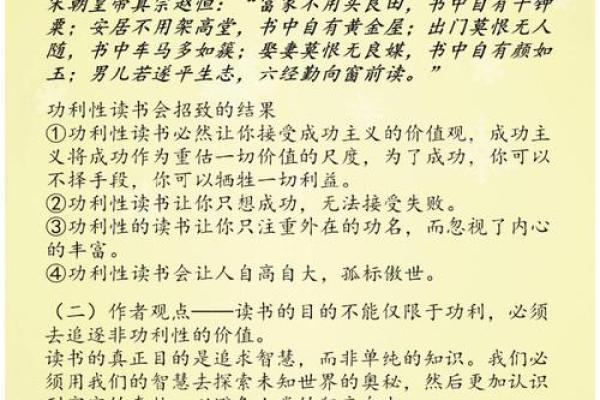 宋朝皇帝真宗赵恒：“富家不用买良田，书中自有千钟
粟；安居不用架高堂，书中自有黄金屋；出门莫恨无人
随，书中车马多如簇；娶妻莫恨无良媒，书中自有颜如
玉；男儿若遂平生志，六经勤向窗前读。”
功利性读书会招致的结果
①功利性读书必然让你接受成功主义的价值观，成功主
义将成功作为重估一切价值的尺度，为了成功，你可以
不择手段，你可以牺牲一切利益。
②功利性读书让你只想成功，无法接受失败。
③功利性的读书让你只注重外在的功名，而忽视了内心
的丰富。
④功利性读书会让人自高自大，孤标傲世。
（二）作者观点——读书的目的不能仅限于功利，必须
去追逐非功利性的价值。
读书的真正目的是追求智慧，而非单纯的知识。我们必
须用我们的智慧去探索未知世界的奥秘，然后更加认识